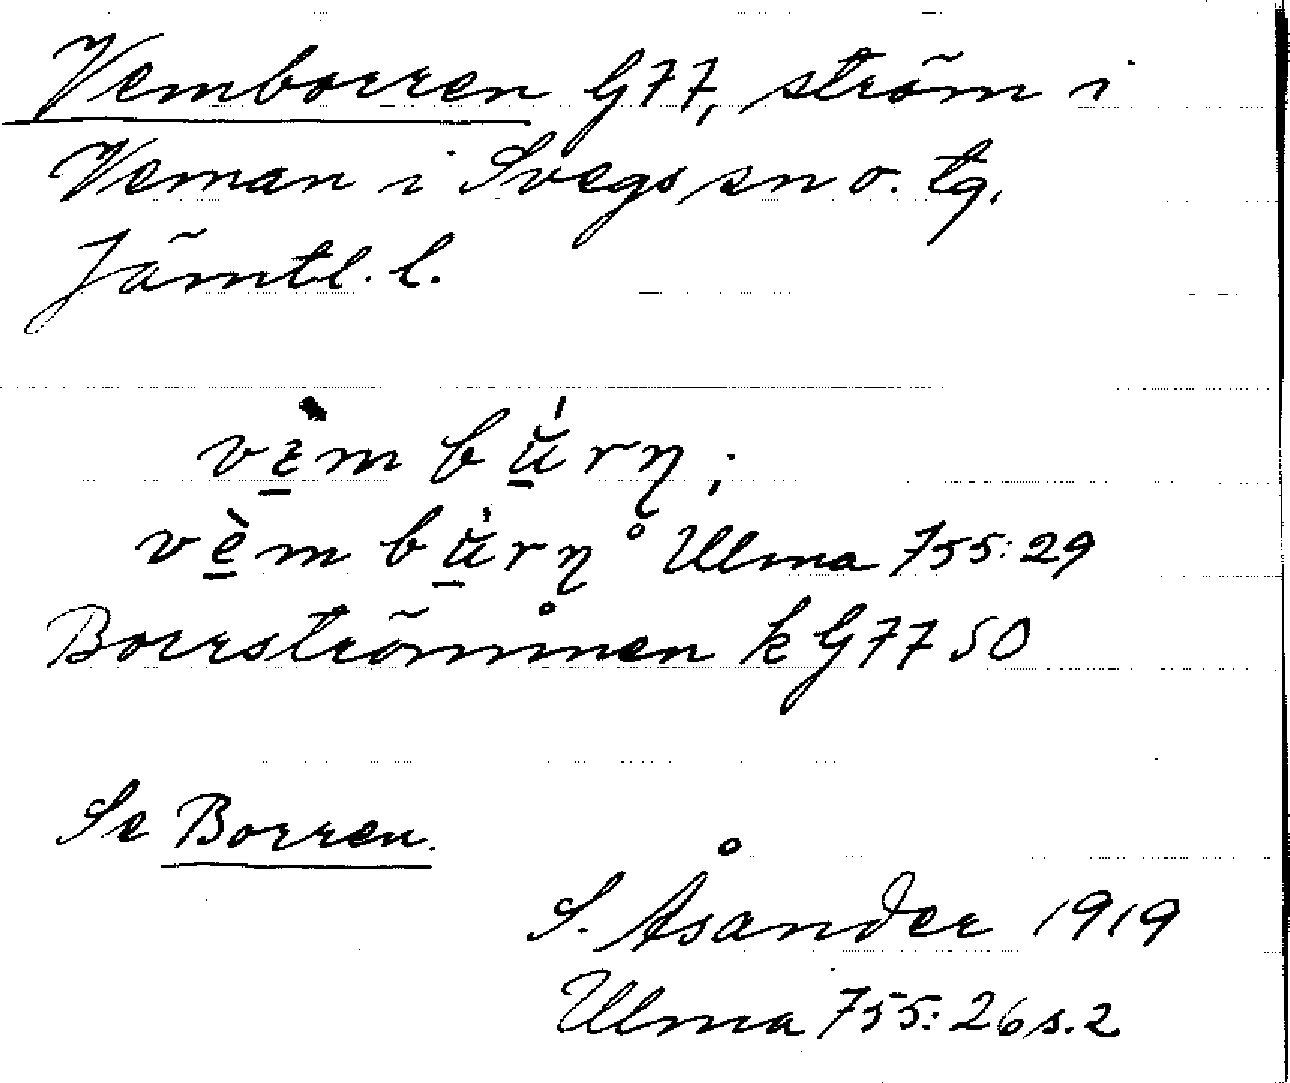 Vemborren G77, ström i
Veman i Svegs sn o. tg.
Jämtl. l.
vèm bŭ́rn̥;
vèm bŭ́rn̥ Ulma 755:29
Borrströmmen k G7750
Se Borren.
S. Åsander 1919
Ulma 755:26 s. 2